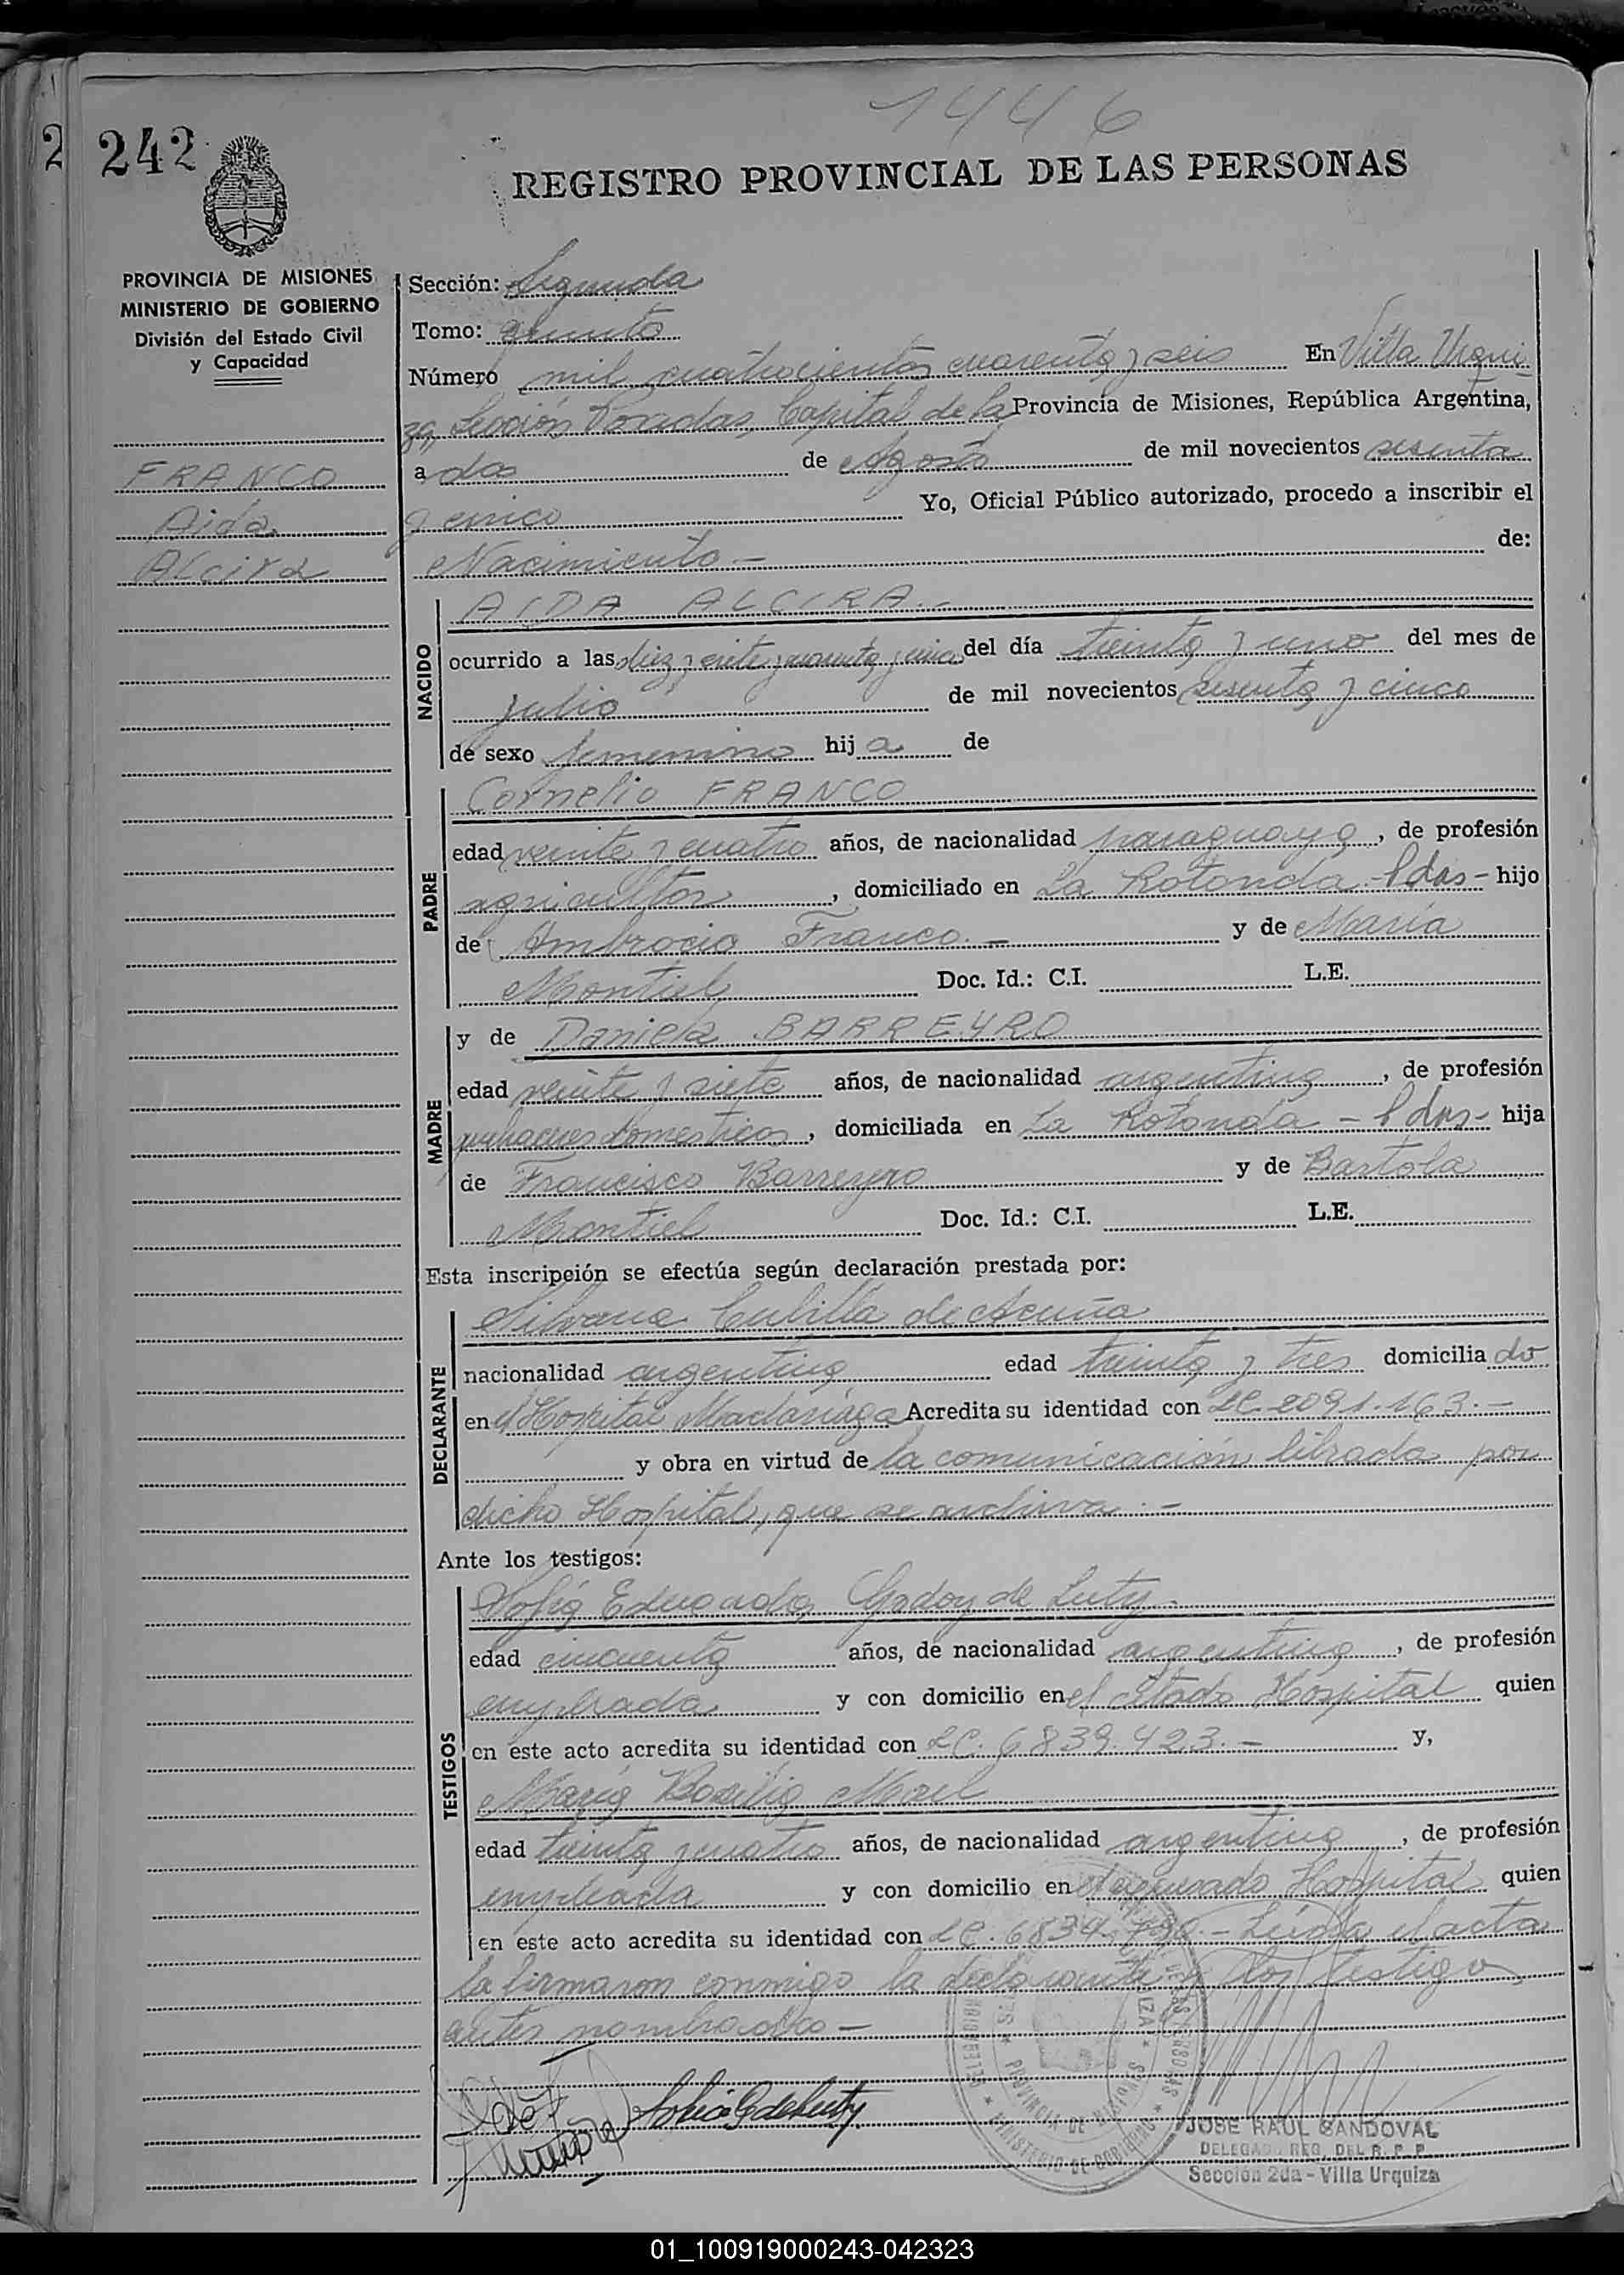 1446
242
REGISTRO PROVINCIAL DE LAS PERSONAS
PROVINCIA DE MISIONES
MINISTERIO DE GOBIERNO
División del Estado Civil
y Capacidad
FRANCO
Aida
Alcira
Sección: Segunda
Tomo: quinto
Número mil cuatrocientos cuarenta y seis En Villa Urqui-
za, Sección Posadas, Capital de la Provincia de Misiones, República Argentina,
a dos de Agosto de mil novecientos sesenta
y cinco Yo, Oficial Público autorizado, procedo a inscribir el
Nacimiento - de:
NACIDO
AIDA ALCIRA.-
ocurrido a las diez y siete y cuarenta y cinco del día treinta y uno del mes de
julio de mil novecientos sesenta y cinco
de sexo femenino hija de
PADRE
Cornelio FRANCO
edad veinte y cuatro años, de nacionalidad paraguaya, de profesión
agricultor, domiciliado en La Rotonda - Pdas - hijo
de Ambrocio Franco.- y de María
Montiel Doc. Id.: C.I. L.E.
MADRE
y de Daniela BARREYRO
edad veinte y siete años, de nacionalidad argentina, de profesión
quehaceres domésticos, domiciliada en La Rotonda - Pdas - hija
de Francisco Barreyro y de Bartola
Montiel Doc. Id.: C.I. L.E.
Esta inscripción se efectúa según declaración prestada por:
DECLARANTE
Silvana Cubilla de Acuña
nacionalidad argentina edad treinta y tres domiciliado
en el Hospital Madariaga Acredita su identidad con LC. 2091.163.-
y obra en virtud de la comunicación librada por
dicho Hospital, que se archiva.-
Ante los testigos:
TESTIGOS
Sofía Godoy de Luty.
edad cincuenta años, de nacionalidad argentina, de profesión
empleada y con domicilio en el citado Hospital quien
en este acto acredita su identidad con LC. 6839.423.- y,
María Basilia Morel
edad treinta y cuatro años, de nacionalidad argentina, de profesión
empleada y con domicilio en el Hospital quien
en este acto acredita su identidad con LC. - Leída el acta
la firmaron conmigo la declarante y los testigos
antes nombrados -
Sofía G de Luty
JOSE RAUL SANDOVAL
DELEGADO REG. DEL R. P. P.
Sección 2da - Villa Urquiza
PROVINCIA DE MISIONES
MINISTERIO DE GOBIERNO
01_100919000243-042323